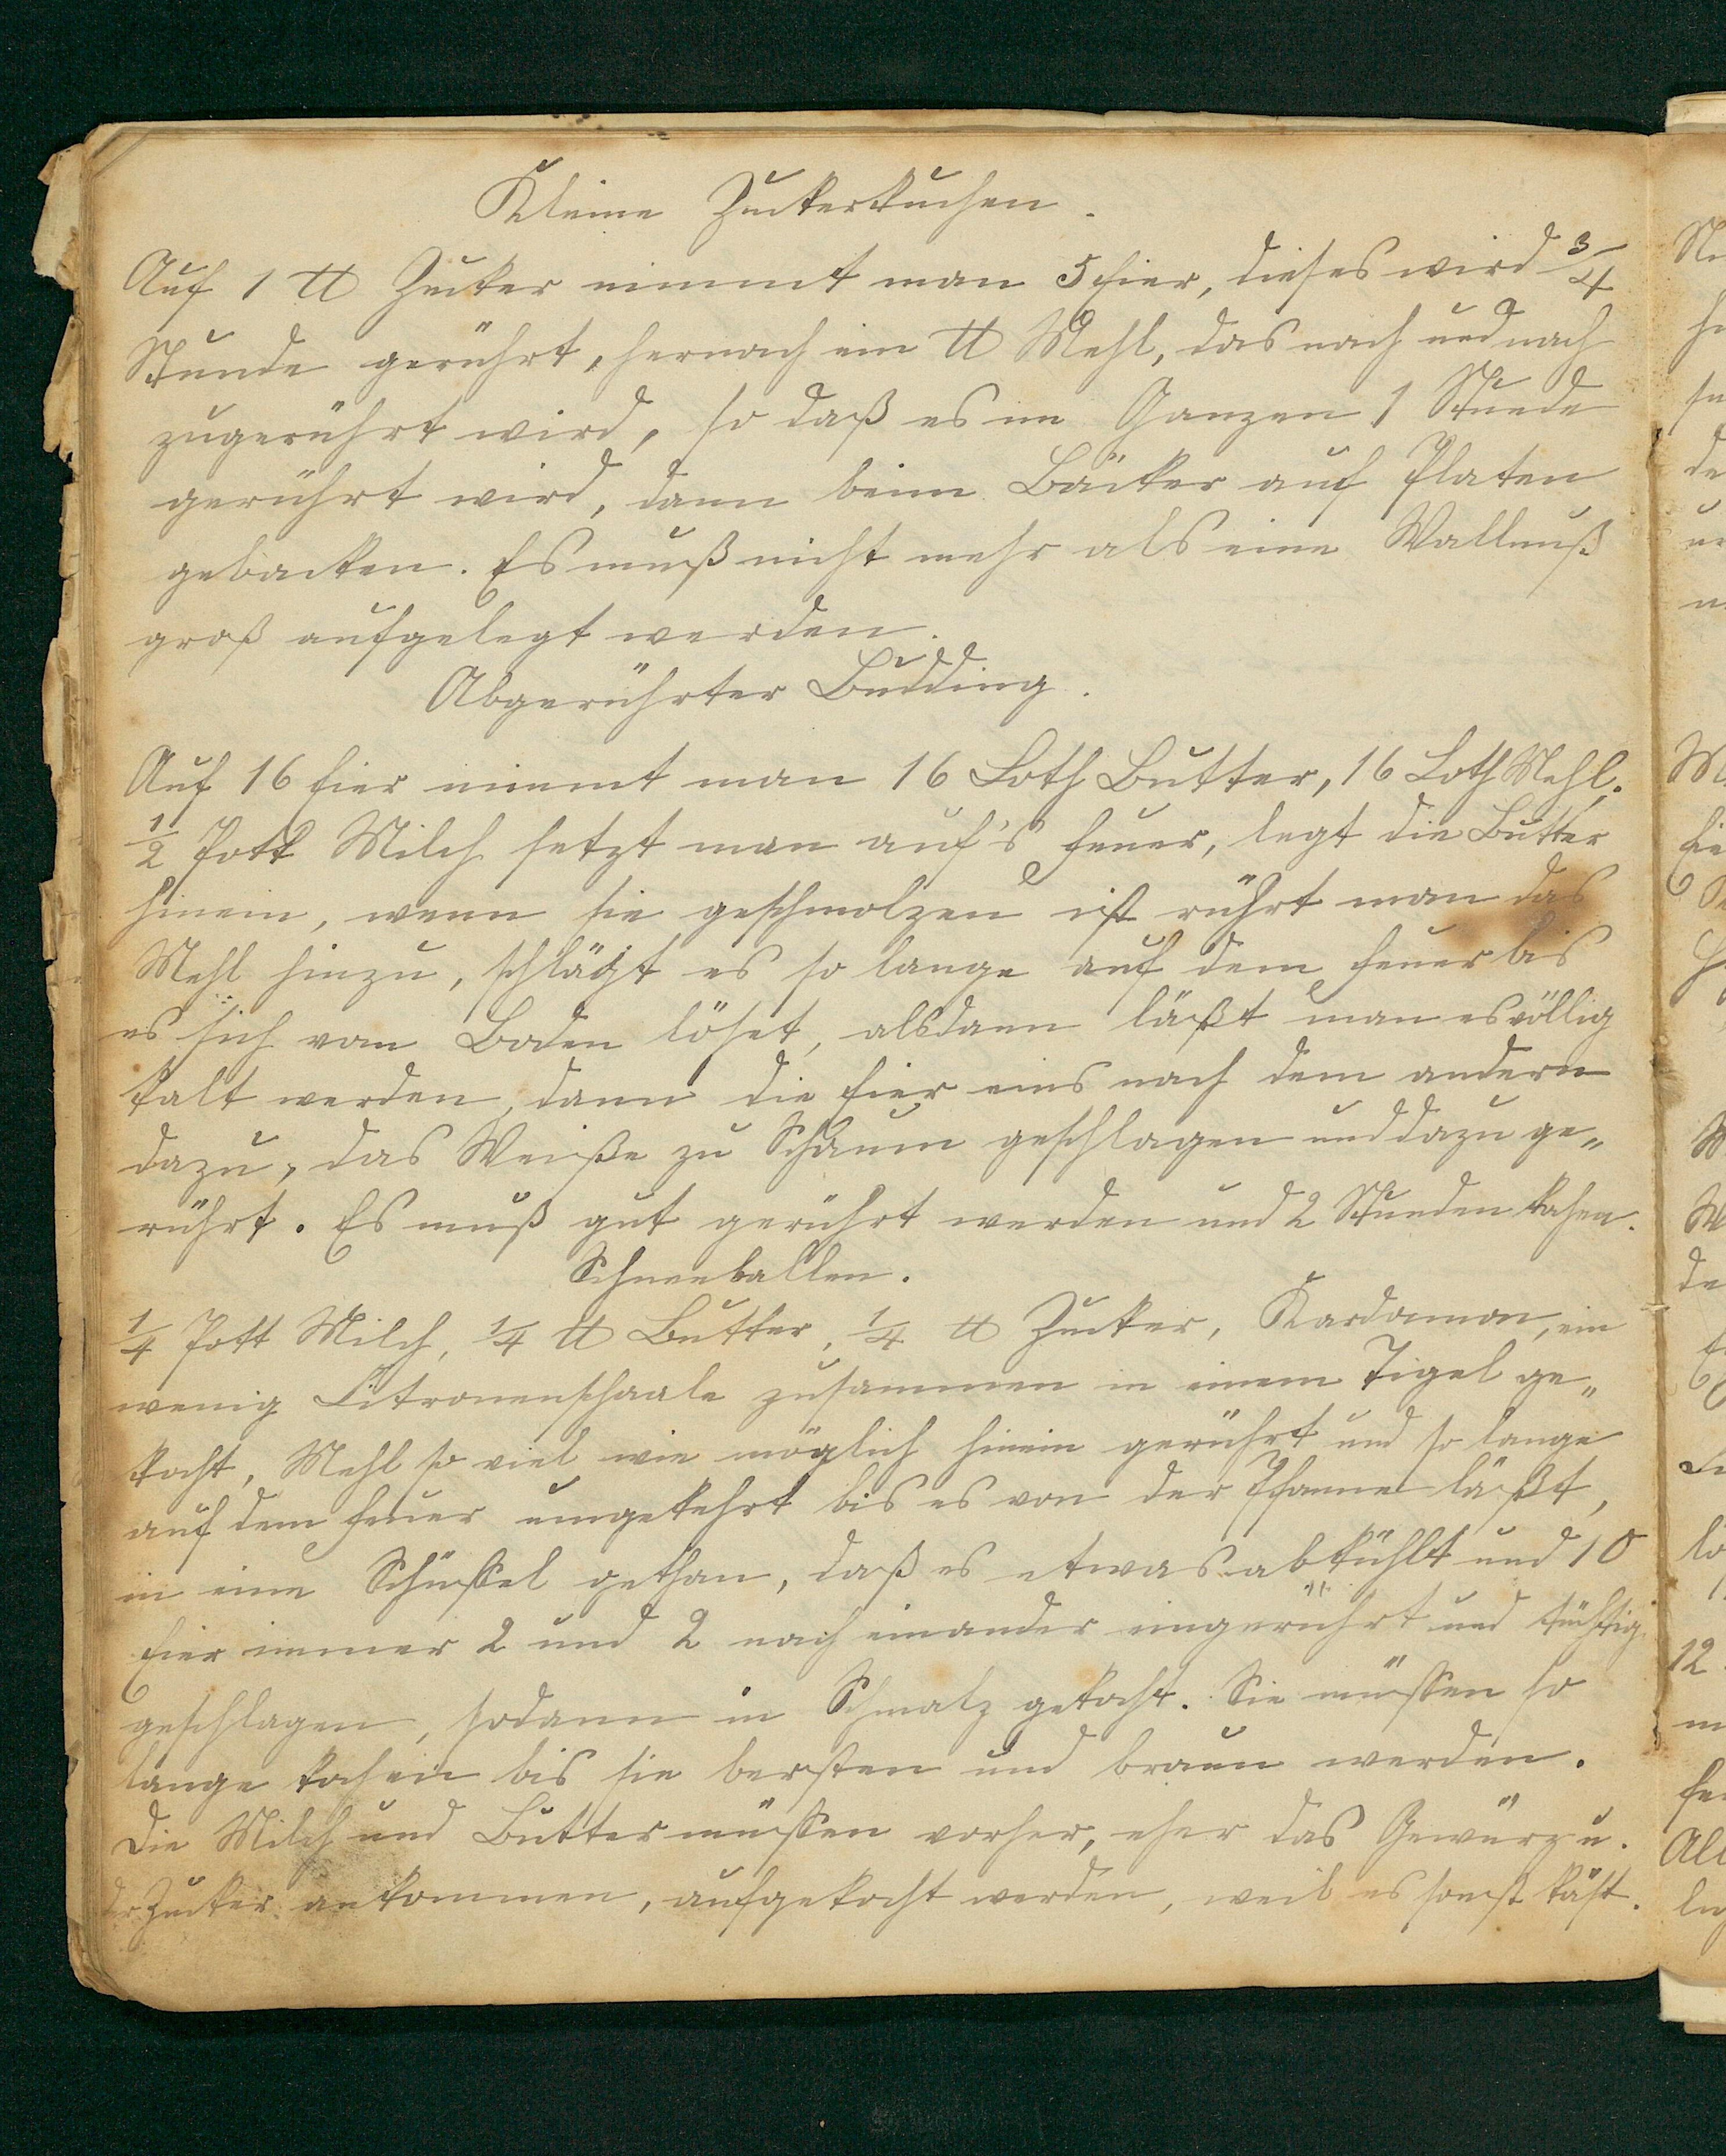 Kleine Zuckerkuchen.
Auf 1 ℔ Zucker nimmt man 5 Eier, dieses wird 3/4
Stunde gerührt, hernach ein ℔ Mehl, das nach und nach
zugerührt wird, so daß es im Ganzen 1 Stunde
gerührt wird, dann beim Bäcker auf Platen
gebacken. Es muß nicht mehr als eine Wallnuß
groß aufgelegt werden.
Abgerührter Budding.
Auf 16 Eier nimmt man 16 Loth Butter, 16 Loth Mehl,
1/2 Pott Milch setzt man auf's Feuer, legt die Butter
hinein, wenn sie geschmolzen ist rührt man das
Mehl hinzu, schlägt es so lange auf dem Feuer bis
es sich vom Boden löset, alsdann läßt man es völlig
kalt werden, dann die Eier eins nach dem andern
dazu, das Weiße zu Schaum geschlagen und dazu ge„
rührt. Es muß gut gerührt werden und 2 Stunden kochen.
Schneeballen.
1/4 Pott Milch, 1/4 ℔ Butter, 1/4 ℔ Zucker, Kardamon, ein
wenig Citronenschaale zusammen in einem Tigel ge„
kocht, Mehl so viel wie möglich hinein gerührt und so lange
auf dem Feuer umgekehrt bis es von der Pfanne läßt,
in eine Schüssel gethan, daß es etwas abkühlt und 10
Eier immer 2 und 2 nach einander eingerührt und tüchtig
geschlagen, sodann in Schmalz gekocht. Sie müssen so
lange kochen bis sie bersten und braun werden.
Die Milch und Butter müssen vorher, eher das Gewürz u.
der Zucker ankommen, aufgekocht werden, weil es sonst käst.